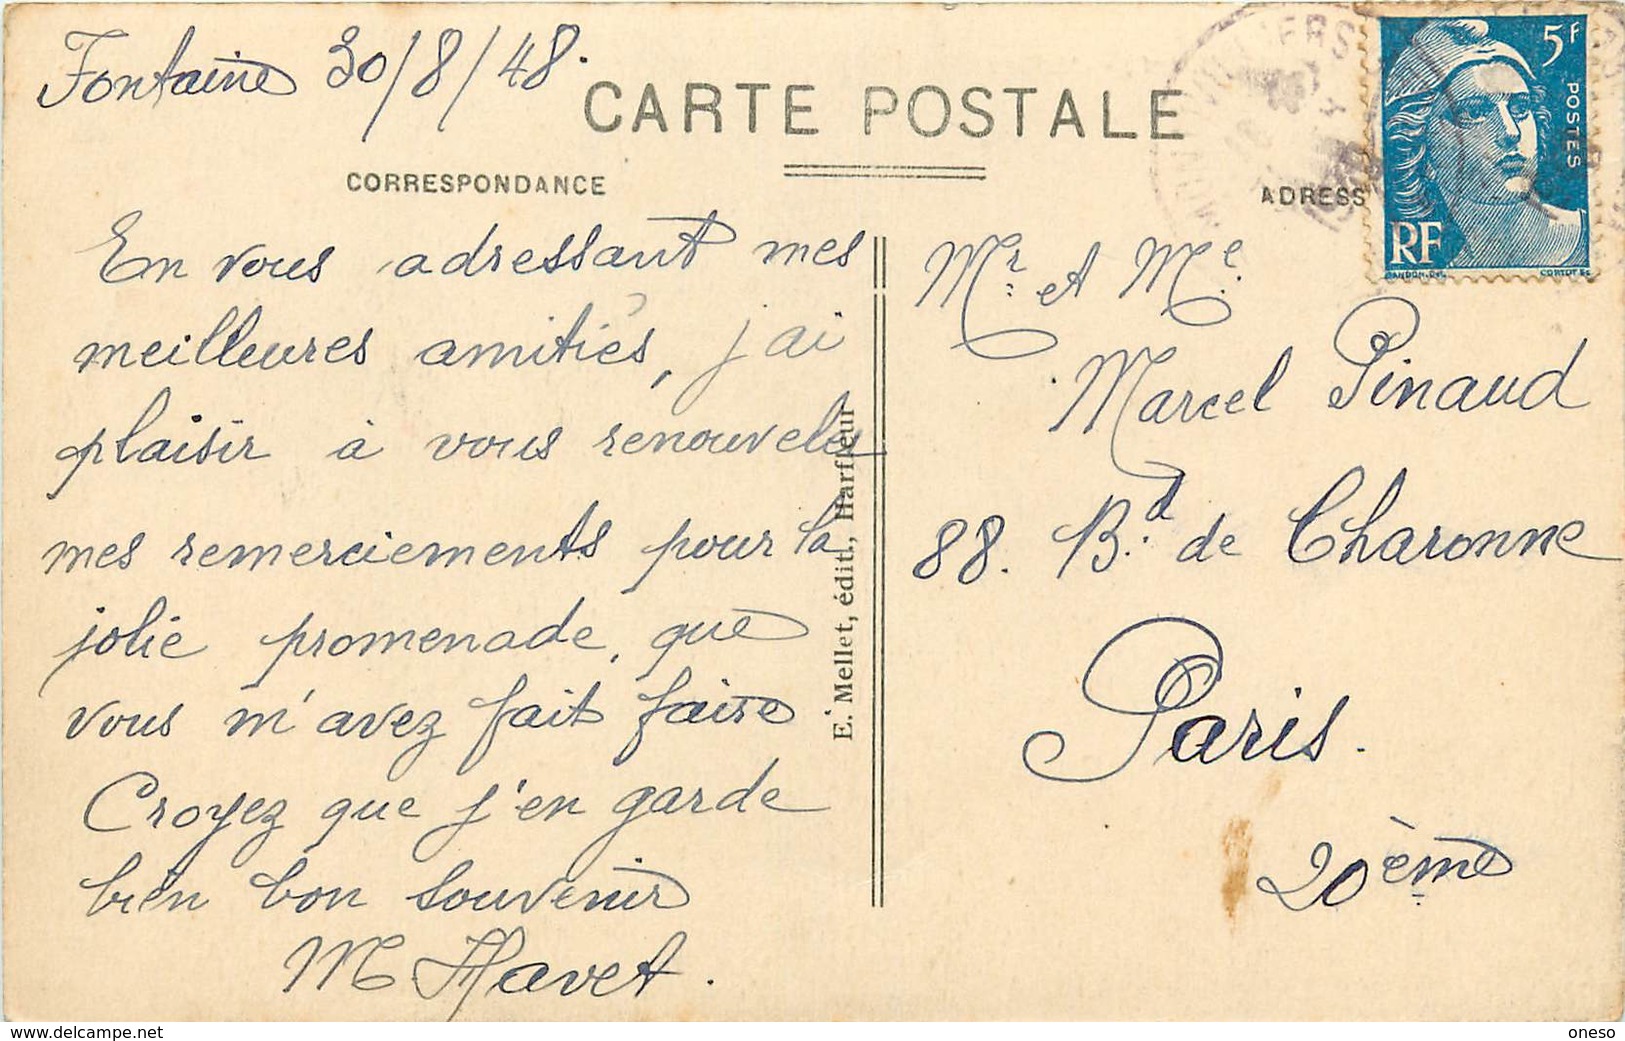 Fontaine 30/8/48.
CARTE POSTALE
CORRESPONDANCE
ADRESS
En vous adressant mes
meilleures amitiés, j'ai
plaisir à vous renouveler
mes remerciements pour la
jolie promenade, que
vous m'avez fait faire
Croyez que j'en garde
bien bon souvenir
M Havet.
E. Mellet, édit., Harfleur
5F
POSTES
RF
GANDON.DEL
CORTOT SC
Mr. et Me.
Marcel Pinaud
88. Bd. de Charonne
Paris.
20ème
www.delcampe.net
oneso